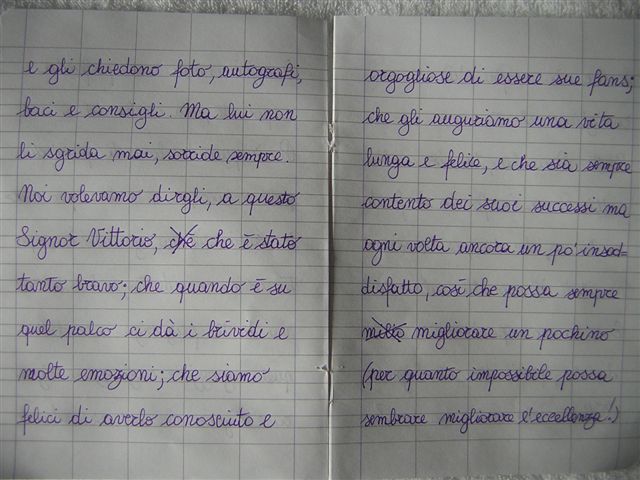 e gli chiedono foto, autografi,
baci e consigli. Ma lui non
li sgrida mai, sorride sempre.
Noi volevamo dirgli, a questo
Signor Vittorio, che che è stato
tanto bravo; che quando è su
quel palco ci dà i brividi e
molte emozioni; che siamo
felici di averlo conosciuto e
orgogliose di essere sue fans;
che gli auguriamo una vita
lunga e felice, e che sia sempre
contento dei suoi successi ma
ogni volta ancora un po' insod=
disfatto, così che possa sempre
migliorare un pochino
(per quanto impossibile possa
sembrare migliorare l'eccellenza!)